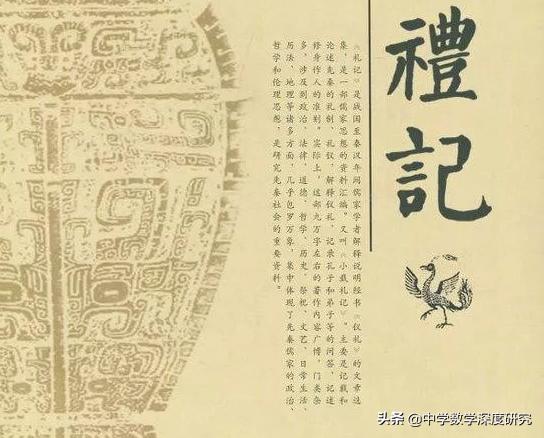 禮記
《礼记》是战国至秦汉年间儒家学者解释说明经书《仪礼》的文章选
集，是一部儒家思想的资料汇编。又叫《小戴礼记》。主要是记载和
论述先秦的礼制、礼仪，解释仪礼，记录孔子和弟子等的问答，记述
修身作人的准则。实际上，这部九万字左右的著作内容广博，门类杂
多，涉及到政治、法律、道德、哲学、历史、祭祀、文艺、日常生活、
历法、地理等诸多方面，几乎包罗万象，集中体现了先秦儒家的政治、
哲学和伦理思想，是研究先秦社会的重要资料。
头条 @中学数学深度研究